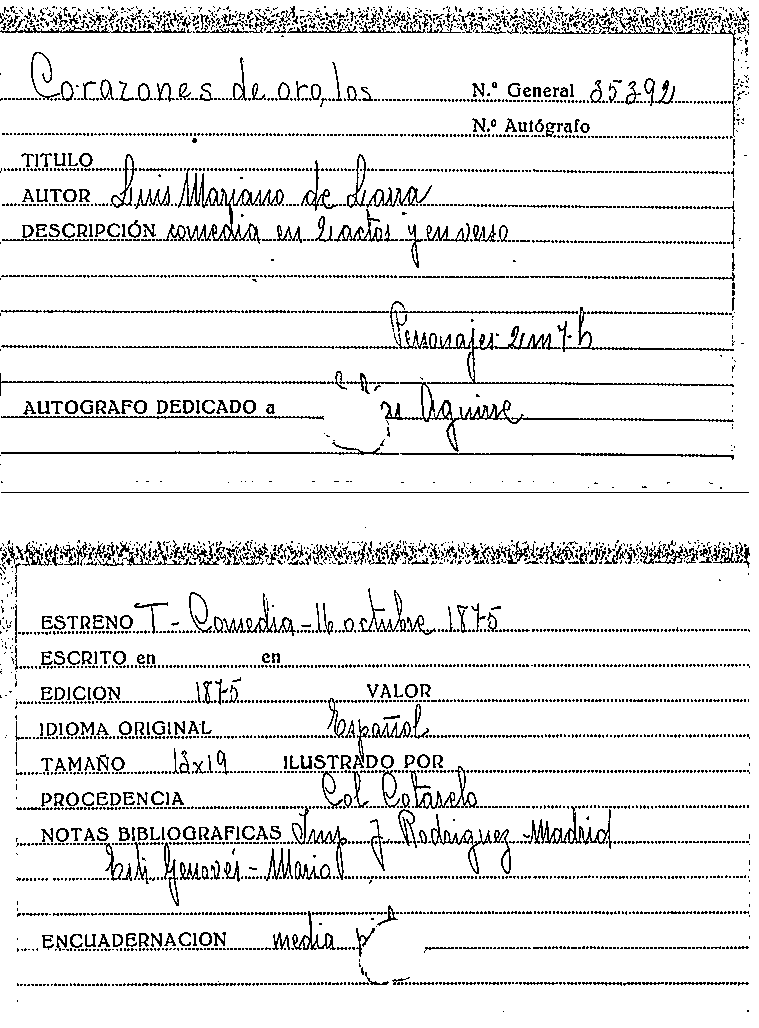 Corazones de oro, los N.º General 35392
N.º Autógrafo
TITULO
AUTOR Luis Mariano de Larra
DESCRIPCIÓN comedia en 2 actos y en verso
Personajes 2 m 7 h
AUTOGRAFO DEDICADO a Aguirre
ESTRENO T - Comedia - 16 octubre 1875
ESCRITO en en
EDICION 1875 VALOR
IDIOMA ORIGINAL Español
TAMAÑO 13x19 ILUSTRADO POR
PROCEDENCIA Col Cotarelo
NOTAS BIBLIOGRAFICAS Imp J. Rodriguez - Madrid
Genovés - Mario
ENCUADERNACION media